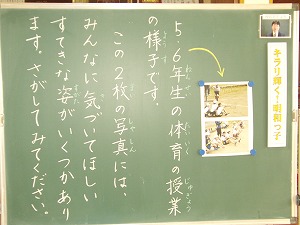 キラリ輝く！明和っ子
５・６年生の体育の授業
の様子です。
この２枚の写真には、
みんなに気づいてほしい
すてきな姿がいくつかあり
ます。さがしてみてください。